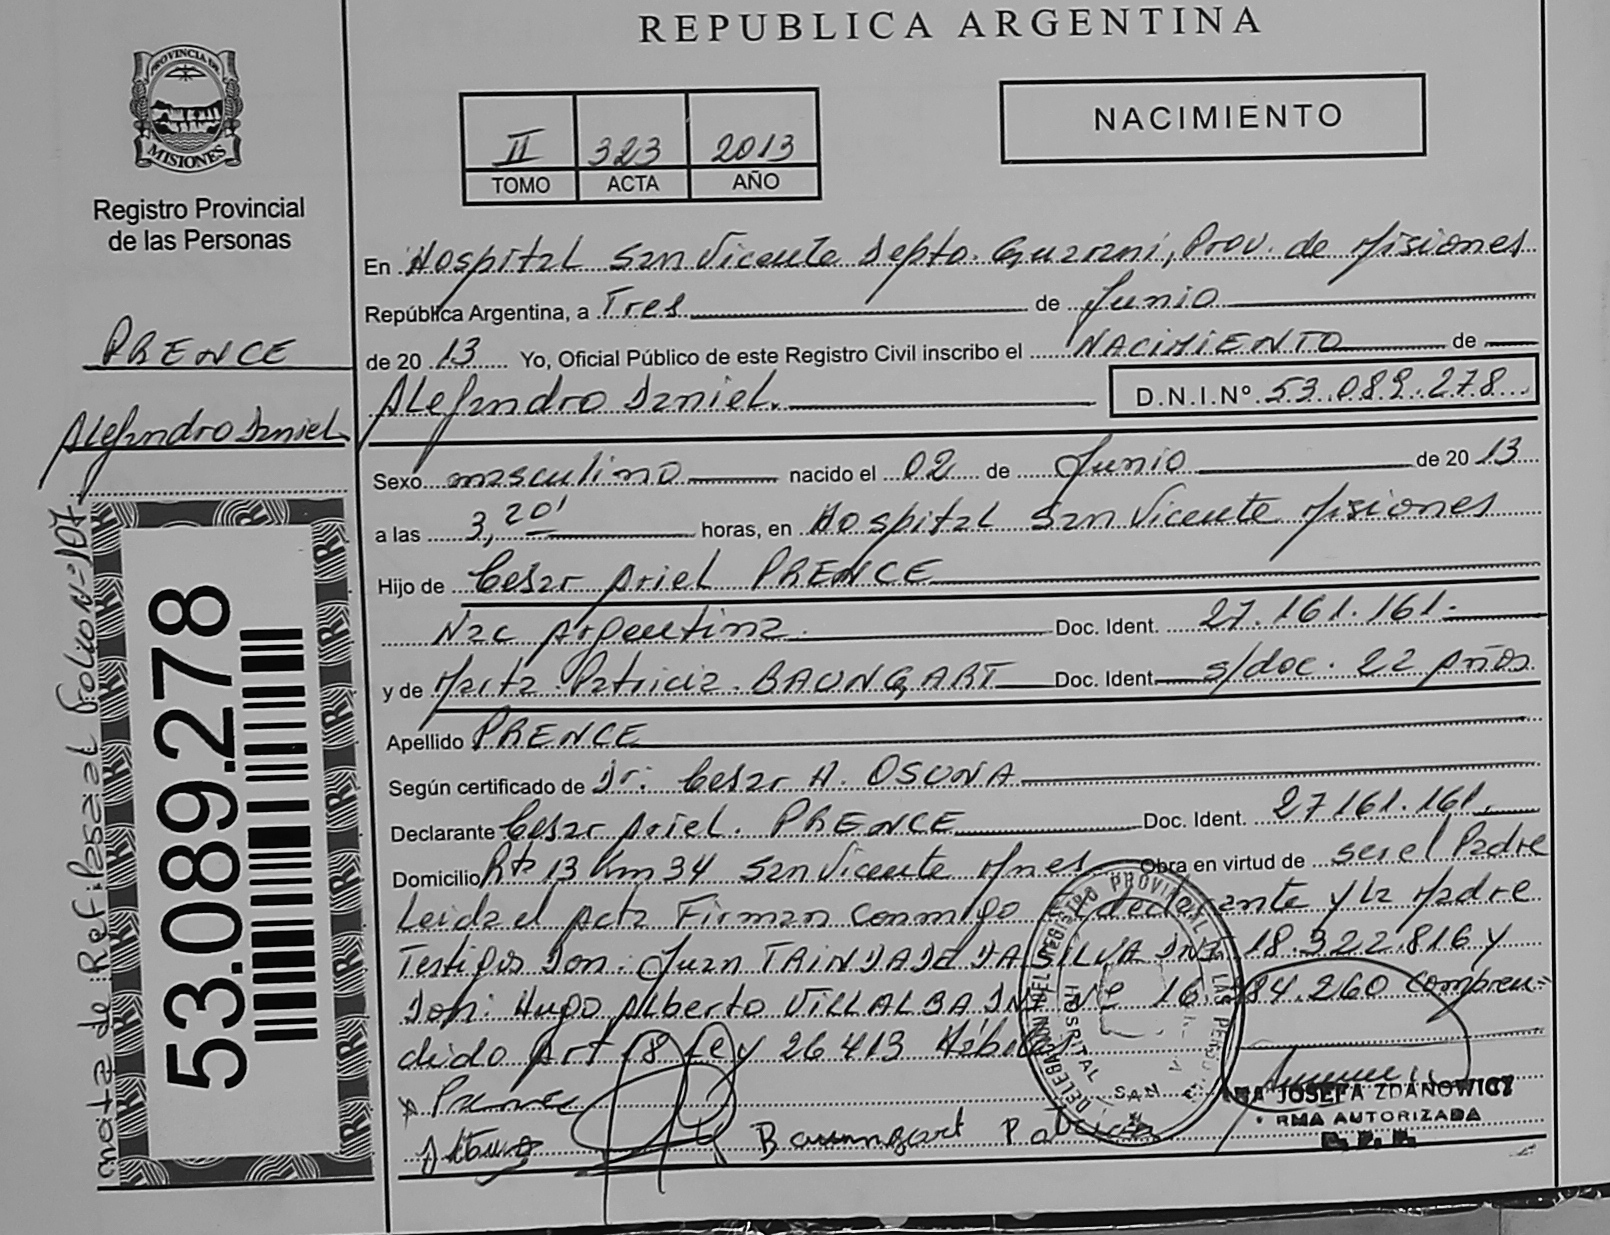 REPUBLICA ARGENTINA
PROVINCIA DE
MISIONES
Registro Provincial
de las Personas
PRENCE
Alejandro Daniel
anota de: Ref: Pasa al Folio Nº 107
53.089.278
II 323 2013
TOMO ACTA AÑO
NACIMIENTO
En Hospital San Vicente Depto. Guarani, Prov. de Misiones
República Argentina, a Tres de Junio
de 20 13 Yo, Oficial Público de este Registro Civil inscribo el NACIMIENTO de
Alejandro Daniel. D.N.I.Nº 53.089.278
Sexo masculino nacido el 02 de Junio de 20 13
a las 3,20' horas, en Hospital San Vicente Misiones
Hijo de Cesar Ariel PRENCE
Nac Argentina Doc. Ident. 27.161.161.
y de Marta Patricia BAUNGART Doc. Ident. s/doc. 22 Años
Apellido PRENCE
Según certificado de Dr: Cesar A. OSUNA
Declarante Cesar Ariel. PRENCE Doc. Ident. 27161.161.
Domicilio Rta 13 Km 34 San Vicente Mnes Obra en virtud de ser el Padre
Leida el Acta Firman conmigo el declarante y la Madre
Testigos Don: Juan TRINDADE DA SILVA DNI 18.322.816 y
Don: Hugo Alberto VILLALBA DNI Nº 16. 84.260 Compren=
dido Art 18 Ley 26413
x Prence
Baumgart Patricia
DELEGACION DEL REGISTRO PROVINCIAL DE LAS PERSONAS
HOSPITAL SAN
JOSEFA ZDANOWICZ
FIRMA AUTORIZADA
R.P.P.